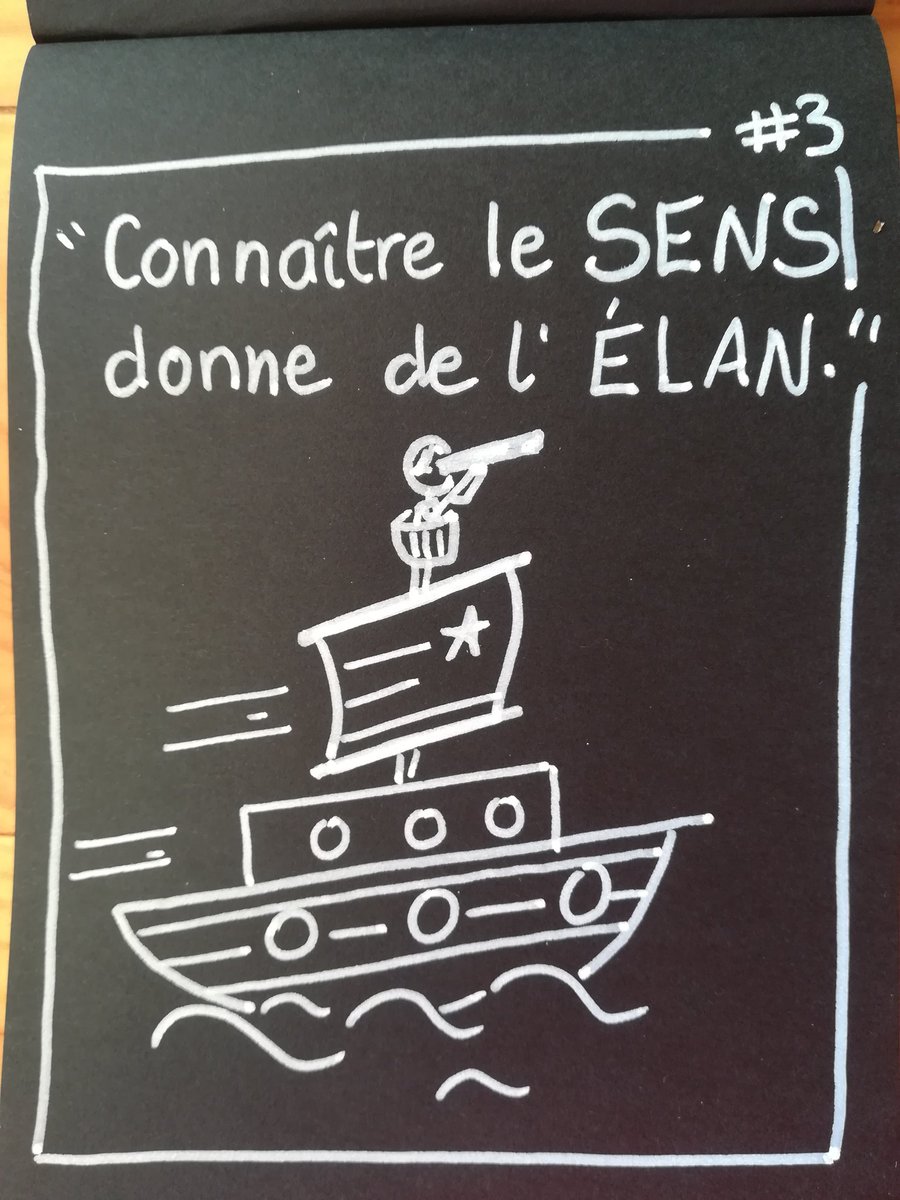 #3
"Connaître le SENS
donne de l'ÉLAN."